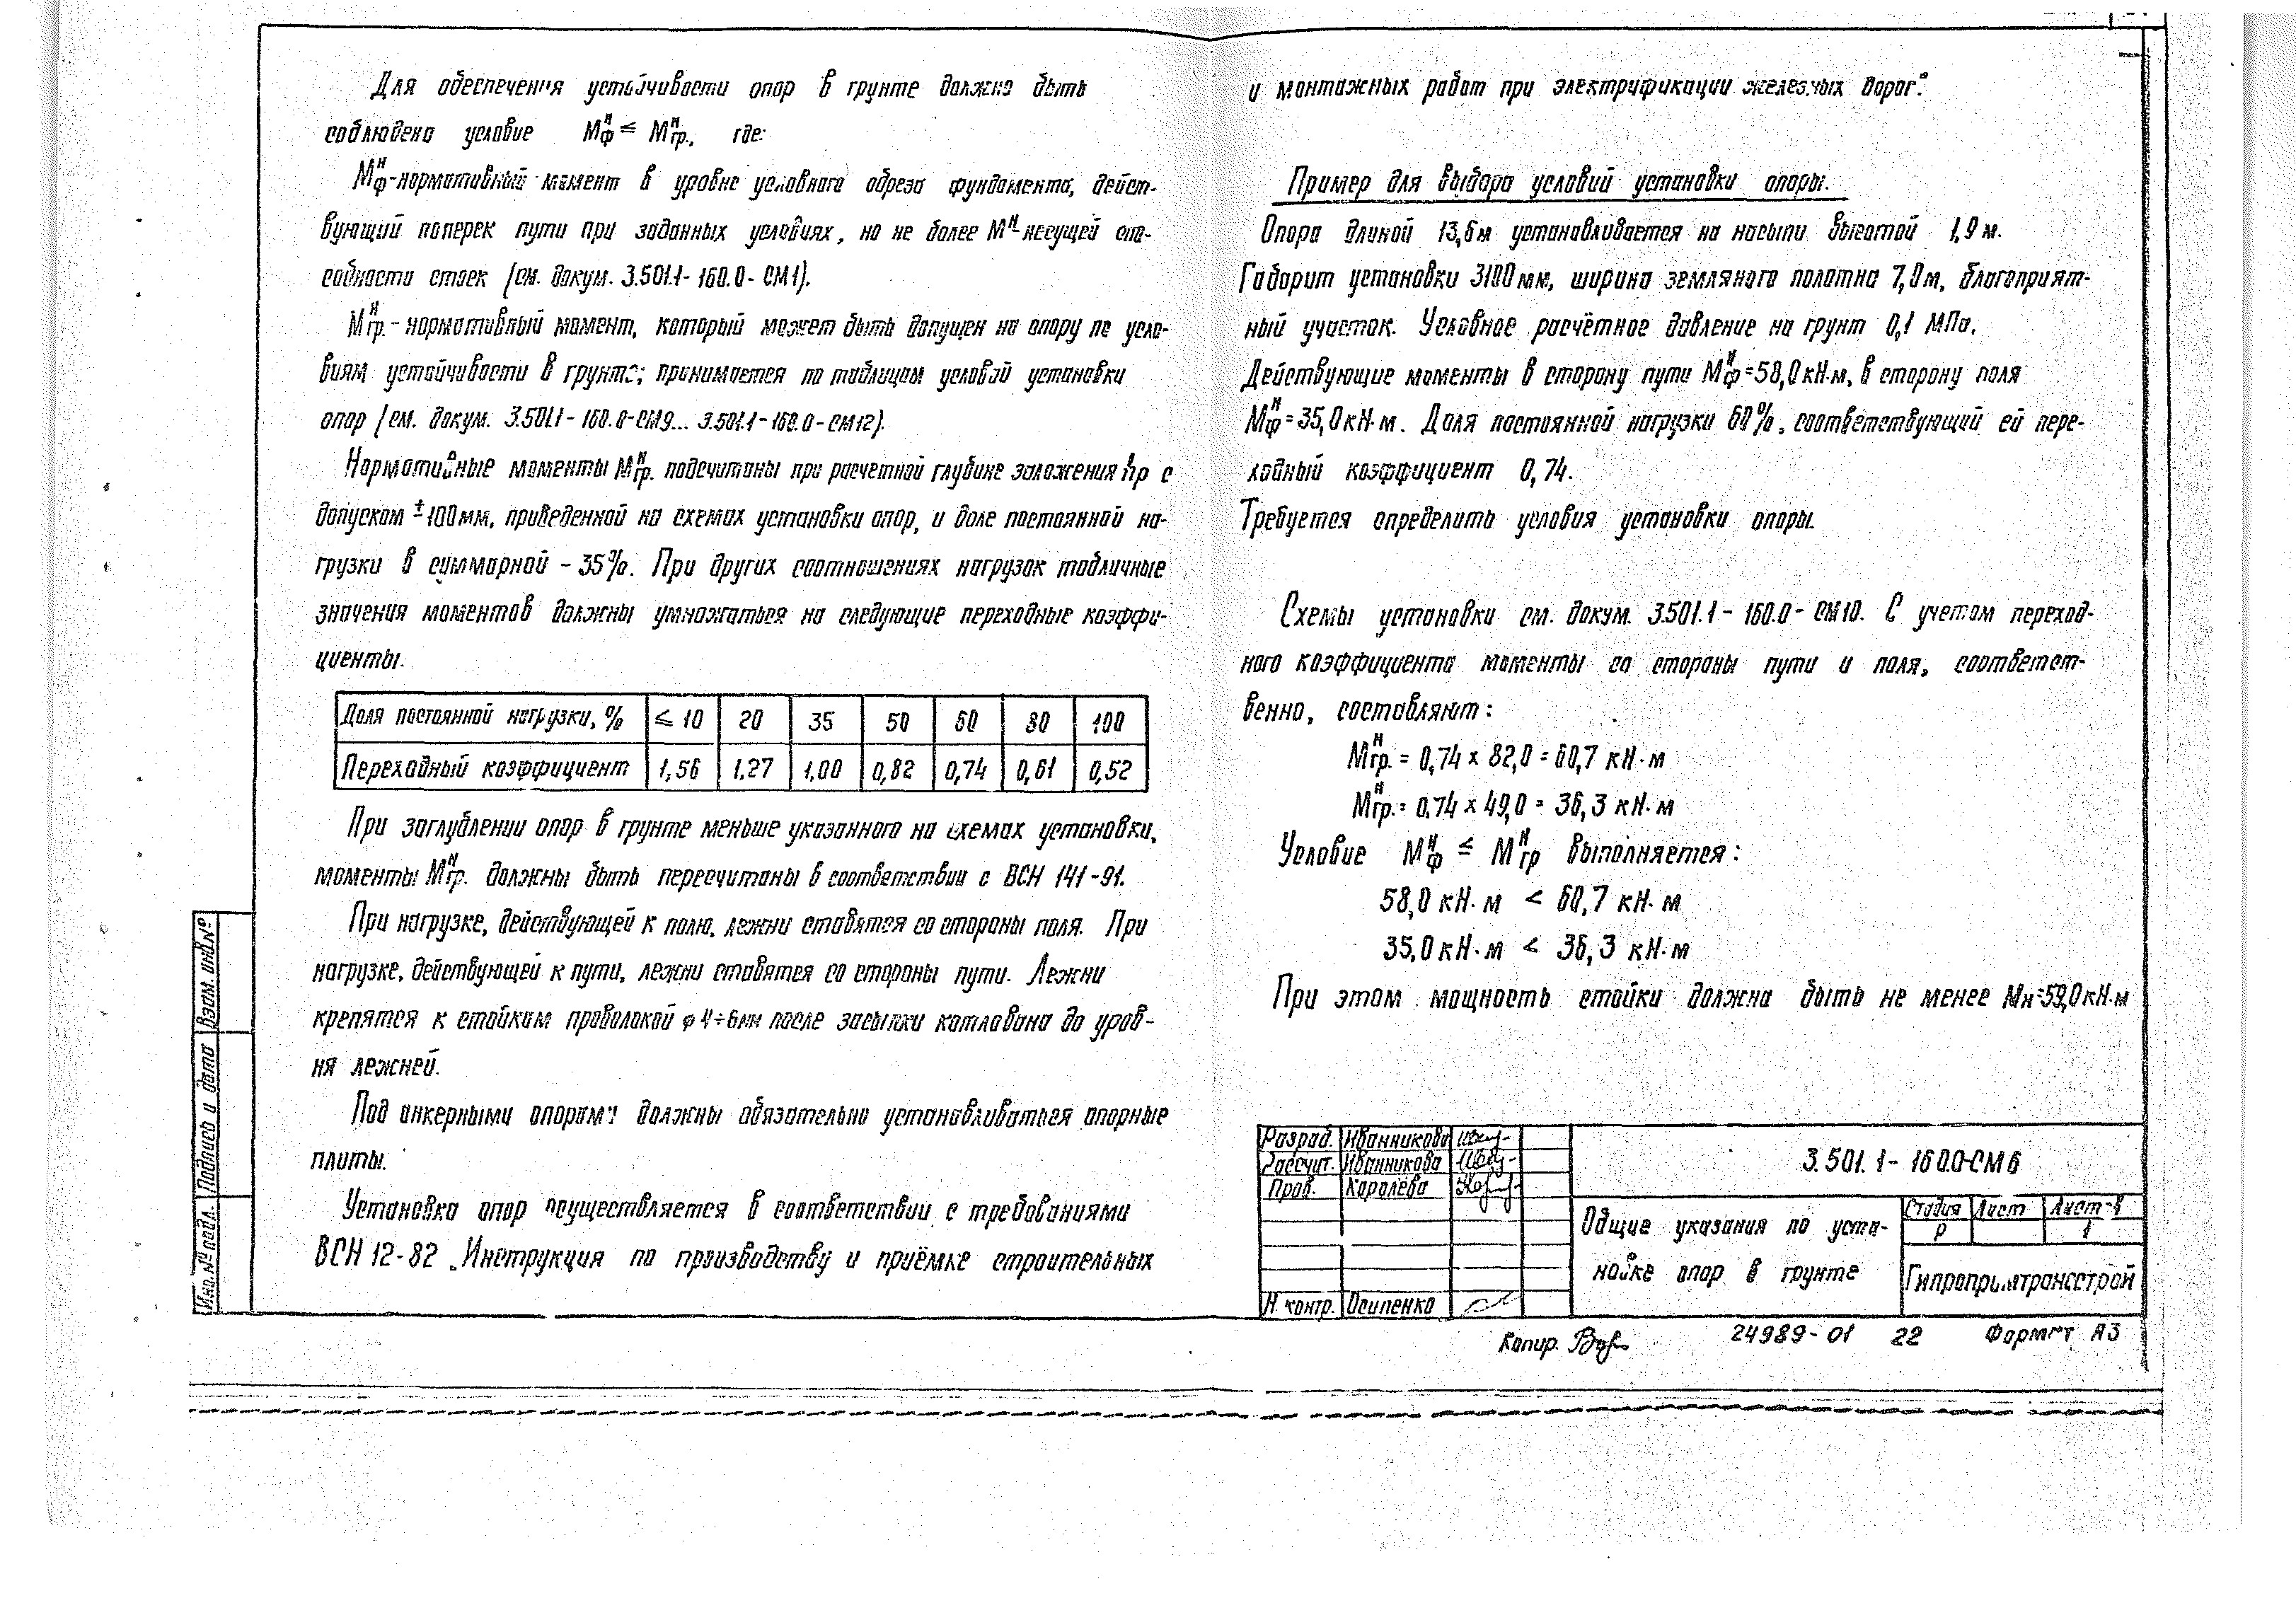 Для обеспечения устойчивости опор в грунте должно быть
соблюдено условие Mфᴴ ≤ Mгр.ᴴ, где:
Mфᴴ-нормативный момент в уровне условного обреза фундамента, дейст-
вующий поперек пути при заданных условиях, но не более Mᴴ-несущей спо-
собности стоек (см. докум. 3.501.1-160.0-СМ1).
Mгр.ᴴ - нормативный момент, который может быть допущен на опору по усло-
виям устойчивости в грунте; принимается по таблицам условий установки
опор (см. докум. 3.501.1-160.0-СМ9... 3.501.1-160.0-СМ12).
Нормативные моменты Mгр.ᴴ подсчитаны при расчетной глубине заложения hр с
допуском ±100мм, приведенной на схемах установки опор, и доле постоянной на-
грузки в суммарной - 35%. При других соотношениях нагрузок табличные
значения моментов должны умножаться на следующие переходные коэффи-
циенты.
Доля постоянной нагрузки, % ≤ 10 20 35 50 60 80 100
Переходный коэффициент 1,56 1,27 1,00 0,82 0,74 0,61 0,52
При заглублении опор в грунте меньше указанного на схемах установки,
моменты Mгр.ᴴ должны быть пересчитаны в соответствии с ВСН 141-91.
При нагрузке, действующей к полю, лежни ставятся со стороны поля. При
нагрузке, действующей к пути, лежни ставятся со стороны пути. Лежни
крепятся к стойкам проволокой φ 4÷6мм после засыпки котлована до уров-
ня лежней.
Под анкерными опорами должны обязательно устанавливаться опорные
плиты.
Установка опор осуществляется в соответствии с требованиями
ВСН 12-82 „Инструкция по производству и приёмке строительных
и монтажных работ при электрификации железных дорог".
Пример для выбора условий установки опоры.
Опора длиной 13,6м устанавливается на насыпи высотой 1,9 м.
Габарит установки 3100мм, ширина земляного полотна 7,0м, благоприят-
ный участок. Условное расчётное давление на грунт 0,1 МПа.
Действующие моменты в сторону пути Mфᴴ=58,0кН·м, в сторону поля
Mфᴴ=35,0кН·м. Доля постоянной нагрузки 60%, соответствующий ей пере-
ходный коэффициент 0,74.
Требуется определить условия установки опоры.
Схемы установки см. докум. 3.501.1-160.0-СМ10. С учетом переход-
ного коэффициента моменты со стороны пути и поля, соответст-
венно, составляют:
Mгр.ᴴ = 0,74 x 82,0 = 60,7 кН·м
Mгр.ᴴ = 0,74 x 49,0 = 36,3 кН·м
Условие Mфᴴ ≤ Mгрᴴ выполняется:
58,0 кН·м < 60,7 кН·м
35,0кН·м < 36,3 кН·м
При этом мощность стойки должна быть не менее Mн=59,0кН·м
Взам. инв.№
Подпись и дата
Инв. № подл.
Разраб. Иванникова
Рассчит. Иванникова
Пров. Королёва
Н. контр. Осипенко
3.501.1-160.0-СМ6
Общие указания по уста-
новке опор в грунте
Стадия Лист Листов
Р 1
Гипропромтрансстрой
Копир.
24989-01 22 Формат А3